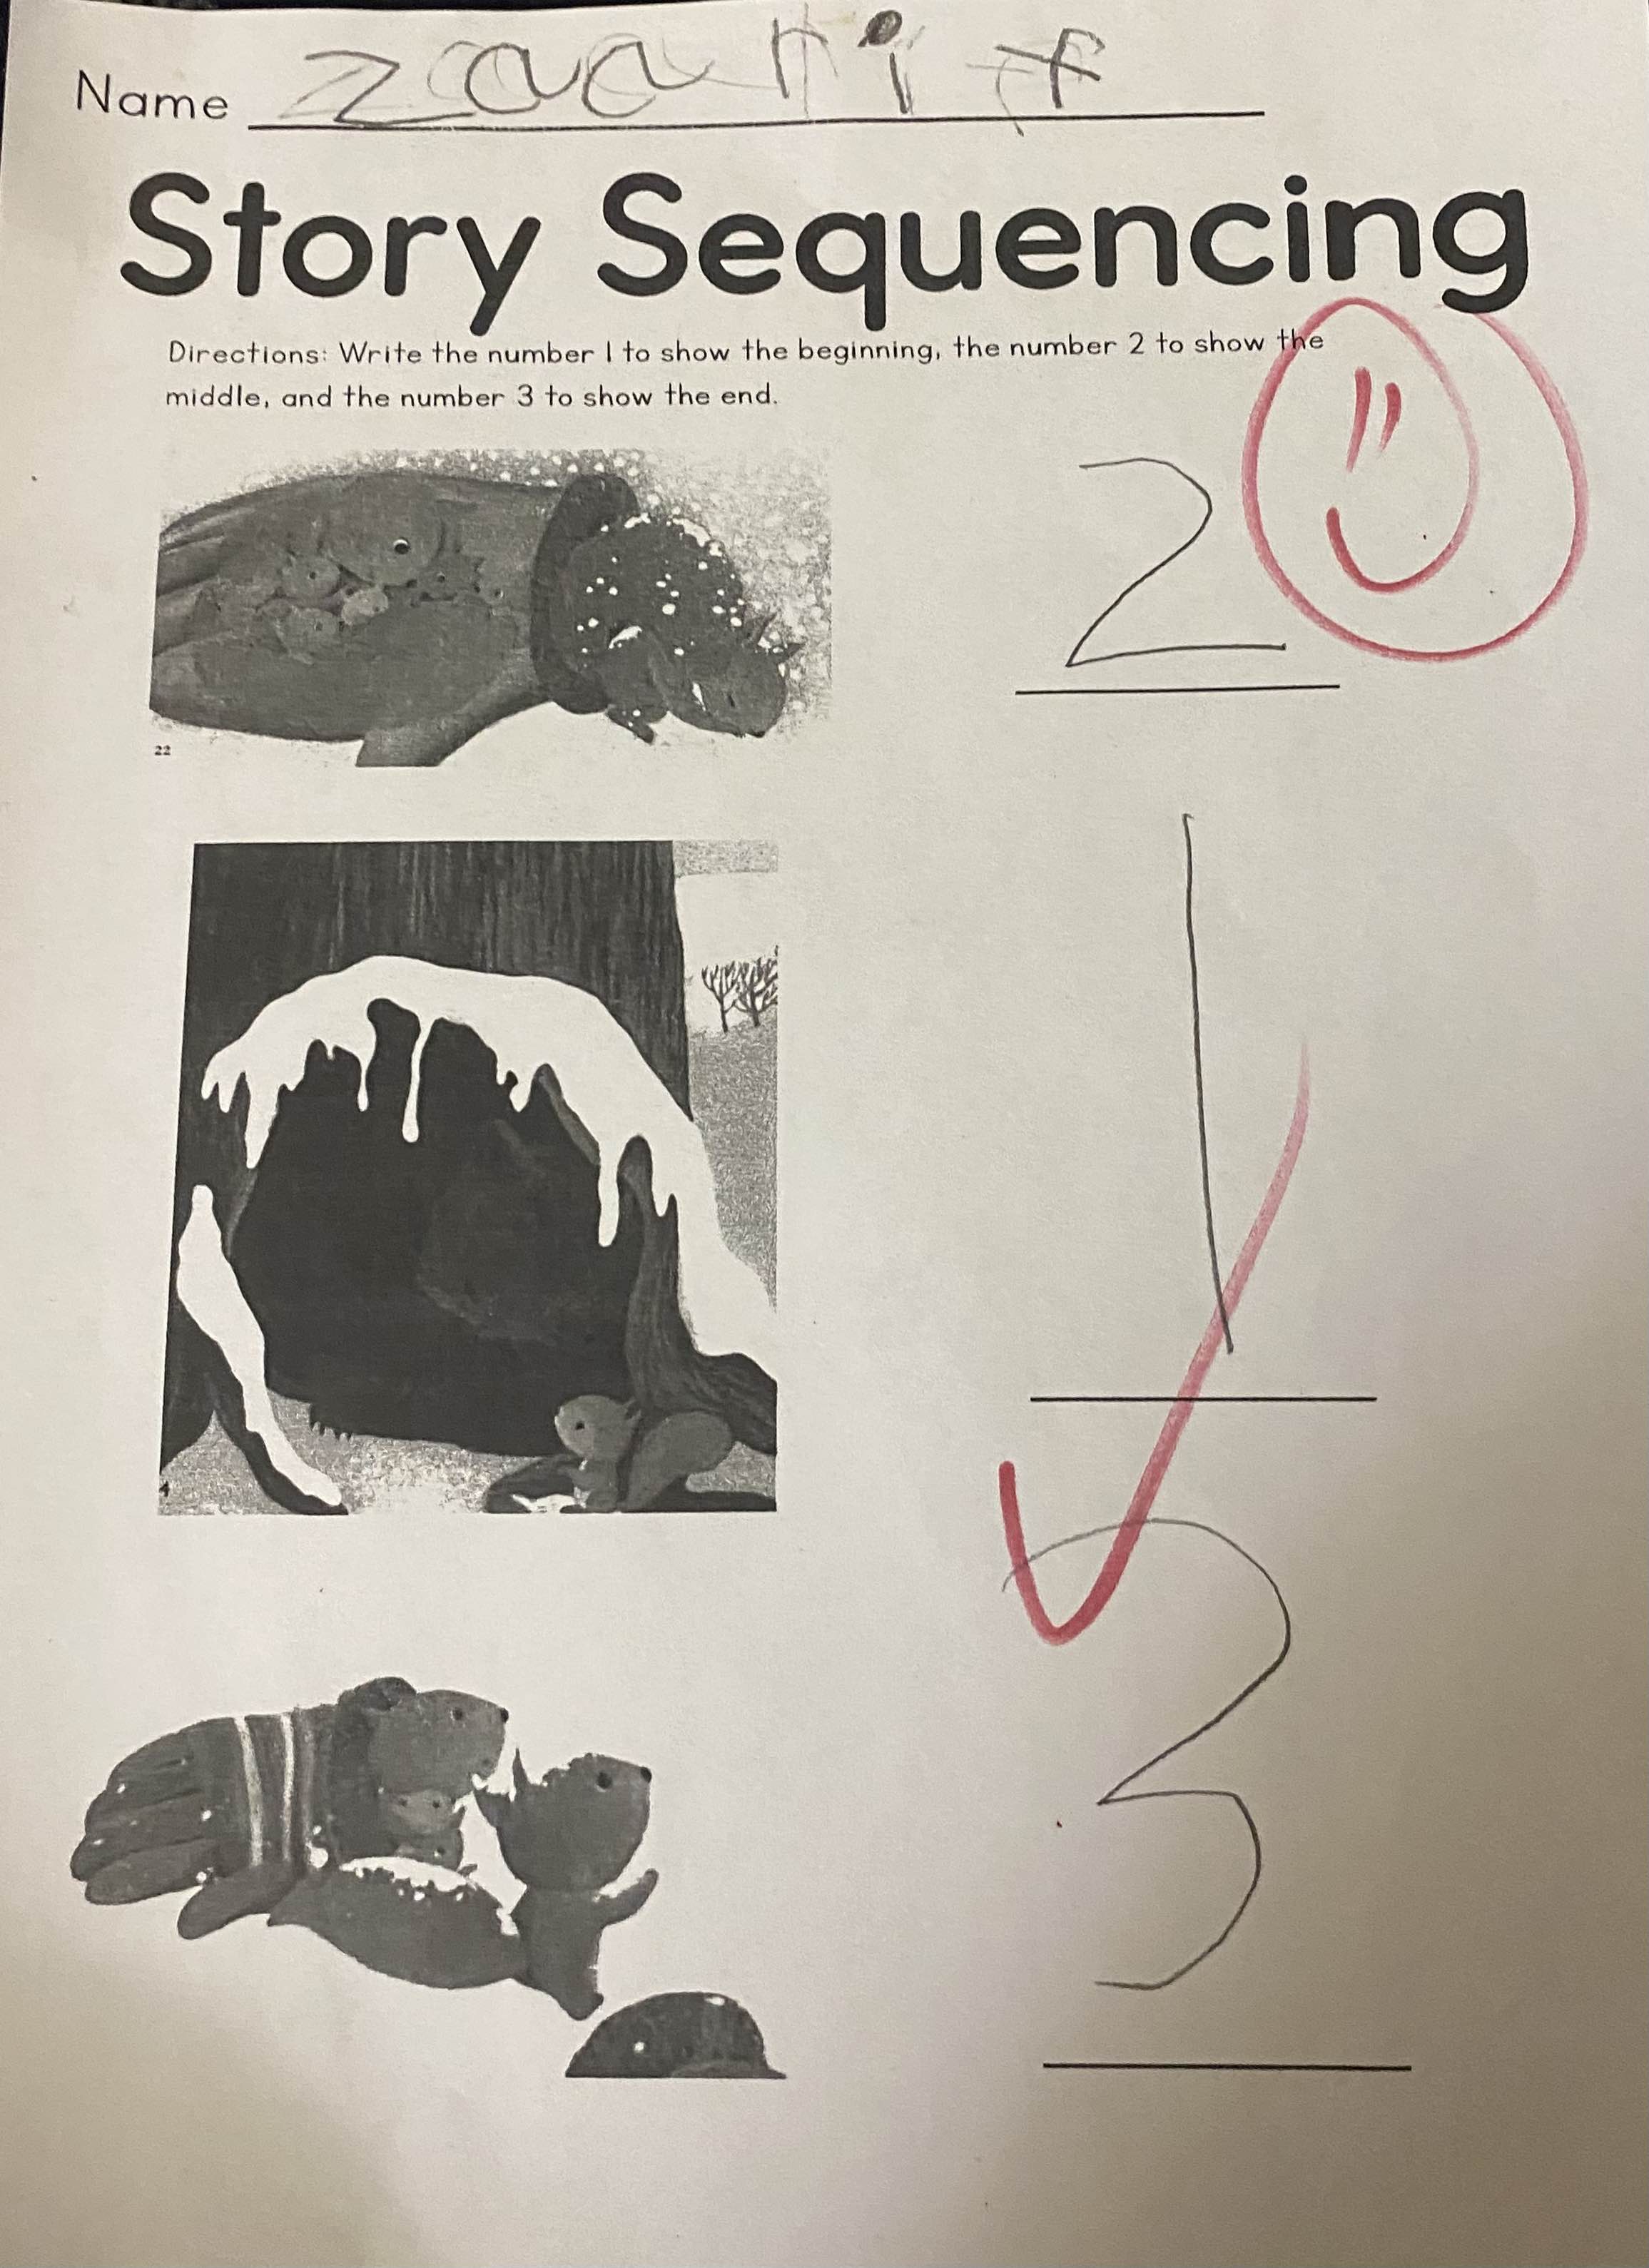 Name Zaahif
Story Sequencing
Directions: Write the number 1 to show the beginning, the number 2 to show the
middle, and the number 3 to show the end.
2
22
1
4
3